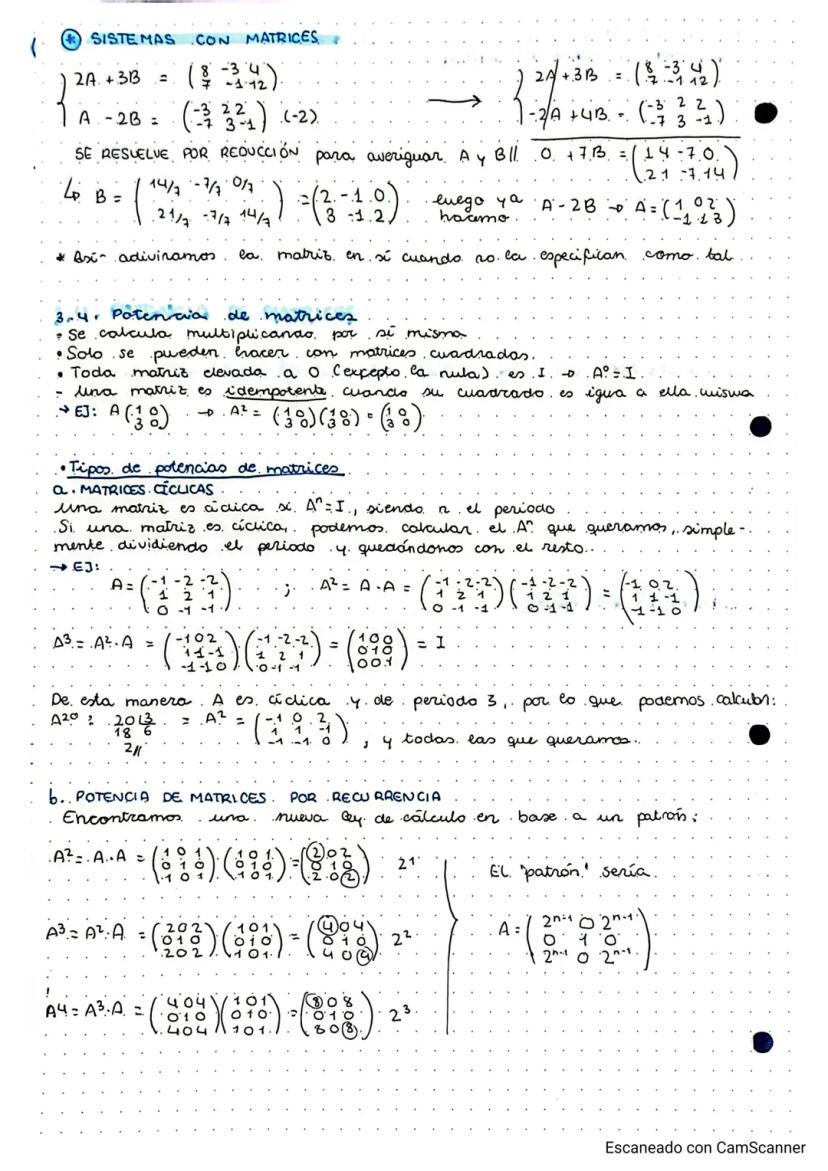 * SISTEMAS CON MATRICES
2A + 3B = (8 -3 4 / 7 -1 12) → 2A + 3B = (8 -3 4 / 7 -1 12)
A - 2B = (-3 2 2 / -7 3 -1) (-2) -2A + 4B = (-3 2 2 / -7 3 -1)
SE RESUELVE POR REDUCCIÓN para averiguar A y B// 0 + 7B = (14 -7 0 / 21 -7 14)
↳ B = (14/7 -7/7 0/7 / 21/7 -7/7 14/7) = (2 -1 0 / 3 -1 2) luego ya hacemo A - 2B → A = (1 0 2 / -1 1 3)
* Así adivinamos la matriz en sí cuando no la especifican como tal
3.4. Potencia de matrices
• Se calcula multiplicando por sí misma
• Solo se pueden hacer con matrices cuadradas.
• Toda matriz elevada a 0 (excepto la nula) es I → A⁰ = I
- Una matriz es idempotente cuando su cuadrado es igua a ella misma
→ EJ: A (1 0 / 3 0) → A² = (1 0 / 3 0)(1 0 / 3 0) = (1 0 / 3 0)
• Tipos de potencias de matrices
a. MATRICES CÍCLICAS
Una matriz es cíclica si Aⁿ = I, siendo n el periodo
Si una matriz es cíclica, podemos calcular el Aⁿ que queramos, simple-
mente dividiendo el periodo y quedándonos con el resto.
→ EJ:
A = (-1 -2 -2 / 1 2 1 / 0 -1 -1) ; A² = A · A = (-1 -2 -2 / 1 2 1 / 0 -1 -1)(-1 -2 -2 / 1 2 1 / 0 -1 -1) = (-1 0 2 / 1 1 -1 / -1 -1 0)
A³ = A² · A = (-1 0 2 / 1 1 -1 / -1 -1 0)(-1 -2 -2 / 1 2 1 / 0 -1 -1) = (1 0 0 / 0 1 0 / 0 0 1) = I
De esta manera A es cíclica y de periodo 3, por lo que podemos calcular:
A²⁰: 20 |3 = A² = (-1 0 2 / 1 1 -1 / -1 -1 0), y todas las que queramos.
18 6
2//
b. POTENCIA DE MATRICES POR RECURRENCIA
Encontramos una nueva ley de cálculo en base a un patrón:
A² = A · A = (1 0 1 / 0 1 0 / 1 0 1) · (1 0 1 / 0 1 0 / 1 0 1) = (2 0 2 / 0 1 0 / 2 0 2) 2¹
EL "patrón" sería
A³ = A² · A = (2 0 2 / 0 1 0 / 2 0 2) · (1 0 1 / 0 1 0 / 1 0 1) = (4 0 4 / 0 1 0 / 4 0 4) 2²
A = (2ⁿ⁻¹ 0 2ⁿ⁻¹ / 0 1 0 / 2ⁿ⁻¹ 0 2ⁿ⁻¹)
A4 = A³ · A = (4 0 4 / 0 1 0 / 4 0 4)(1 0 1 / 0 1 0 / 1 0 1) = (8 0 8 / 0 1 0 / 8 0 8) 2³
Escaneado con CamScanner